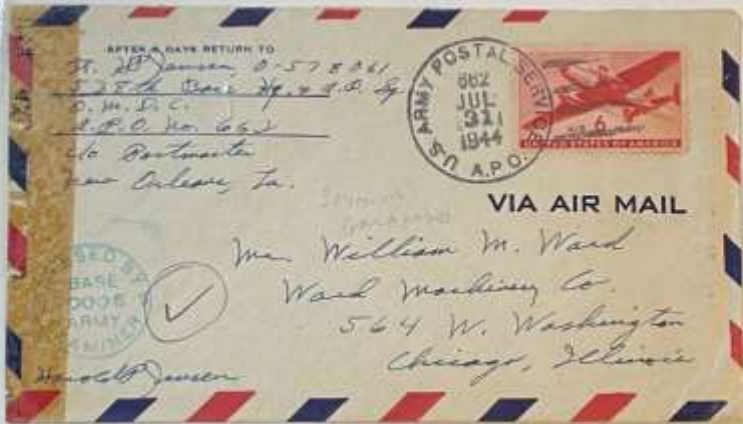 AFTER 5 DAYS RETURN TO
Lt. H Jansen, O-578061
Base Hq. & A.B. Sq.
A.P.O. No. 662
c/o Postmaster
New Orleans, La.
U.S. ARMY POSTAL SERVICE
662
JUL
31
1944
A.P.O.
6¢
UNITED STATES OF AMERICA
VIA AIR MAIL
Mr. William M. Ward
Ward Machinery Co.
564 W. Washington
Chicago, Illinois
PASSED BY
BASE
ARMY
EXAMINER
Harold Jansen